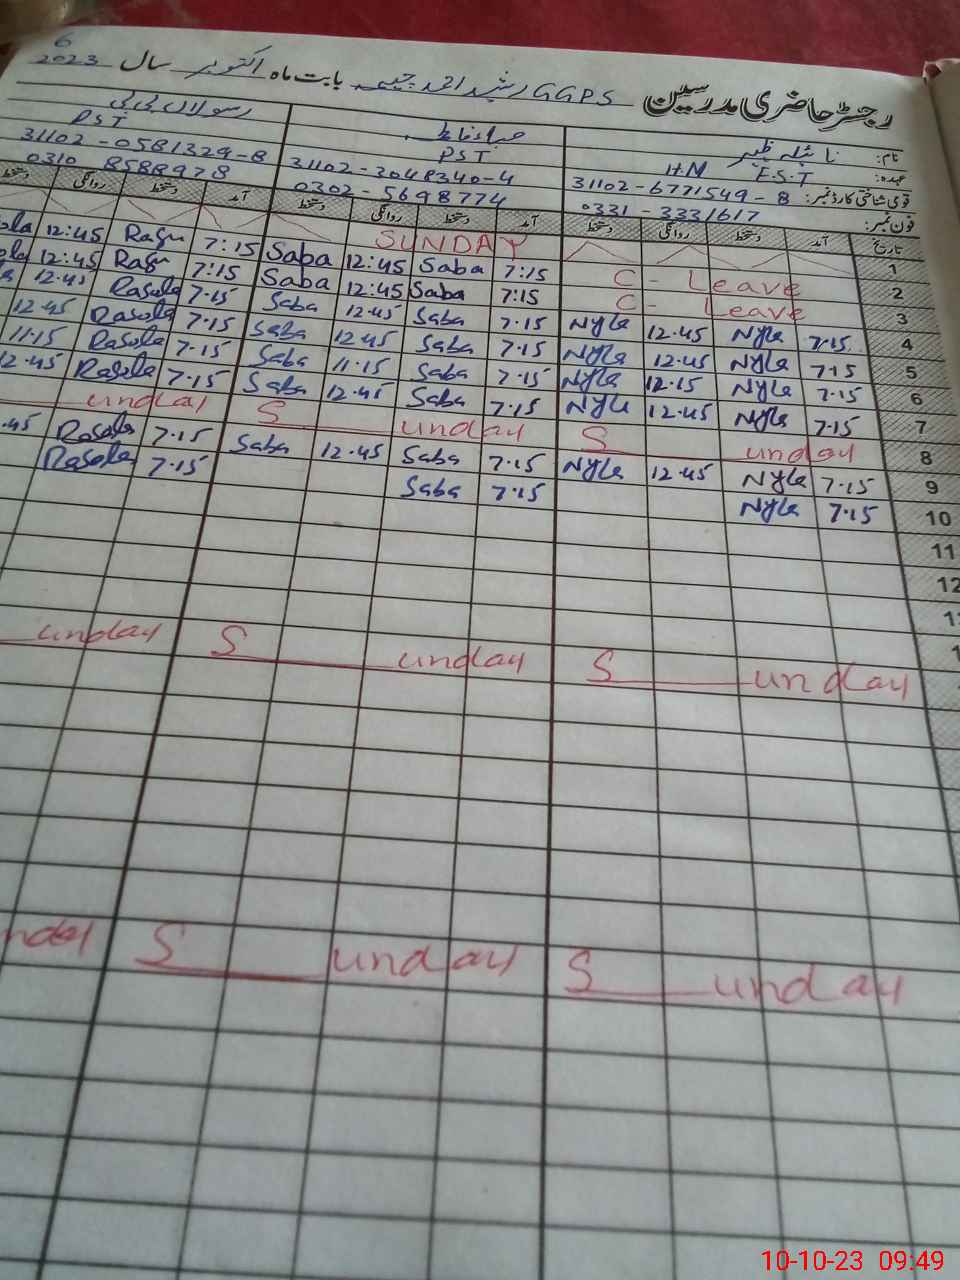 رجسٹر حاضری مدرسین GGPS رشید احمد چیمہ بابت ماہ اکتوبر سال 2023
6
نام: نائیلہ ظہیر صباء حفاظت رسولاں بی بی
عہدہ: E.S.T H.M PST PST
قومی شناختی کارڈ نمبر: 31102-6771549-8 31102-3048340-4 31102-0581329-8
فون نمبر: 0331-3331617 0302-5698774 0310 8588978
تاریخ آمد دستخط روانگی دستخط آمد دستخط روانگی دستخط آمد دستخط روانگی دستخط
1 SUNDAY
2 C - Leave 7:15 Saba 12:45 Saba 7:15 Rasu 12:45
3 C - Leave 7:15 Saba 12:45 Saba 7:15 Rasu 12:45
4 7.15 Nyla 12.45 Nyla 7.15 Saba 12.45 Saba 7.15 Rasola 12.45
5 7.15 Nyla 12.45 Nyla 7.15 Saba 12.45 Saba 7.15 Rasola 12.45
6 7.15 Nyla 12.15 Nyla 7.15 Saba 11.15 Saba 7.15 Rasola 11.15
7 7.15 Nyla 12.45 Nyla 7.15 Saba 12.45 Saba 7.15 Rasola 12.45
8 S unday S unday unday
9 7.15 Nyla 12.45 Nyla 7.15 Saba 12.45 Saba 7.15 Rasola .45
10 7.15 Nyla 7.15 Saba 7.15 Rasola
11
12
S unday S unday unday
S unday S unday
10-10-23 09:49